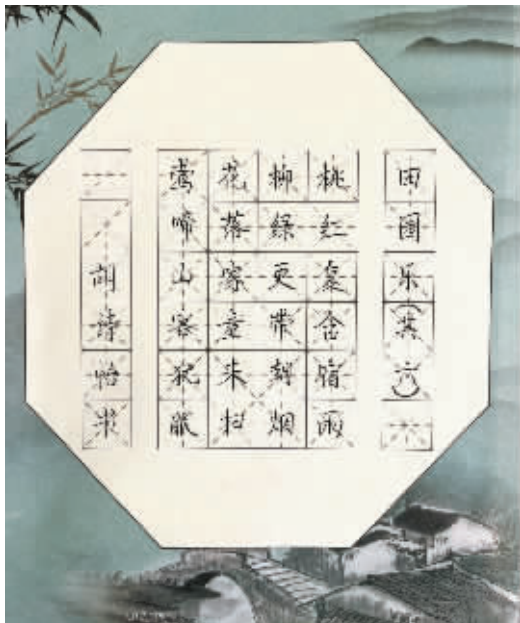 田園乐(其六)
桃红复含宿雨
柳綠更带朝烟
花落家童未扫
莺啼山客犹眠
诗怡